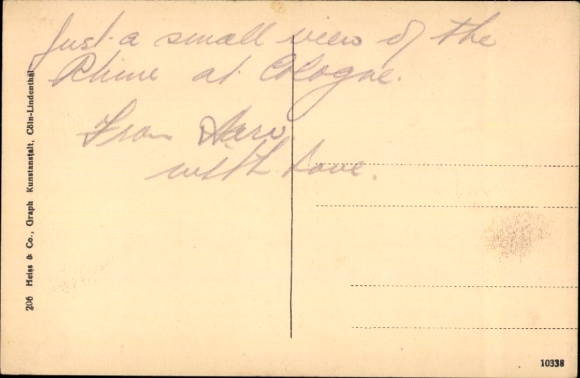 Just a small view of the
Rhine at Cologne.
From
with Love.
206 Heiss & Co., Graph Kunstanstalt, Cöln-Lindenthal
10338